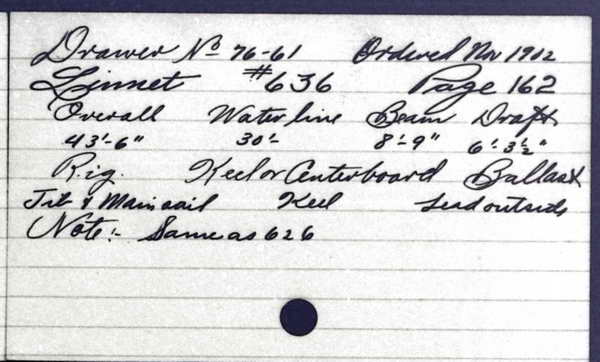 Drawer No 76-61 Ordered Nov 1912
Linnet #636 Page 162
Overall Waterline Beam Draft
43'-6" 30'- 8'-9" 6'-3½"
Rig. Keel or Centerboard Ballast
Jib & Mainsail Keel Lead outside
Note:- Same as 626